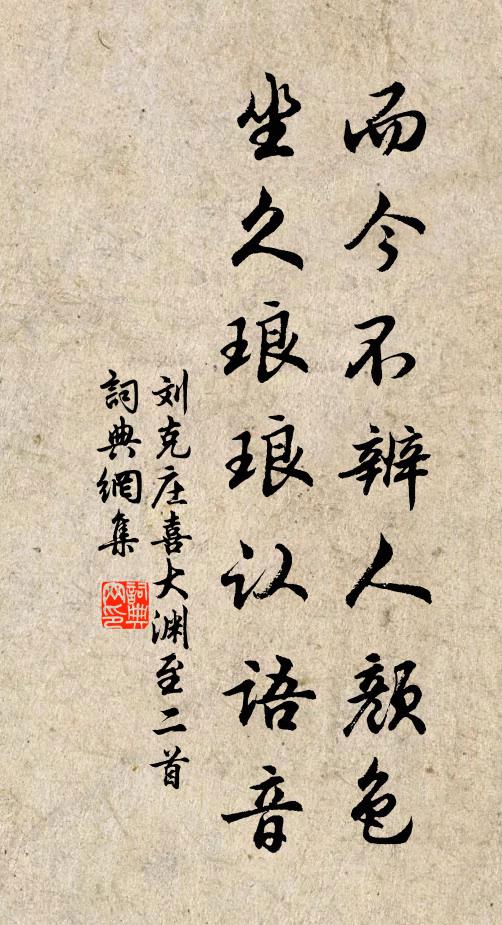 而今不辨人颜色
坐久琅琅认语音
刘克庄喜大渊至二首
詞典網集
詞典
网印